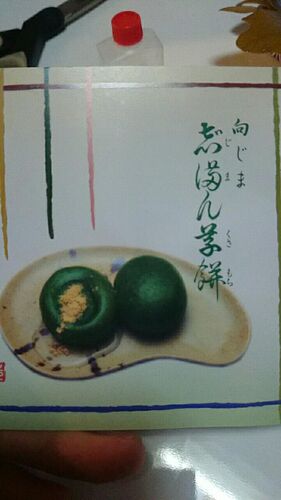 向じま
志゛満ん草餅
じ ま くさ もち